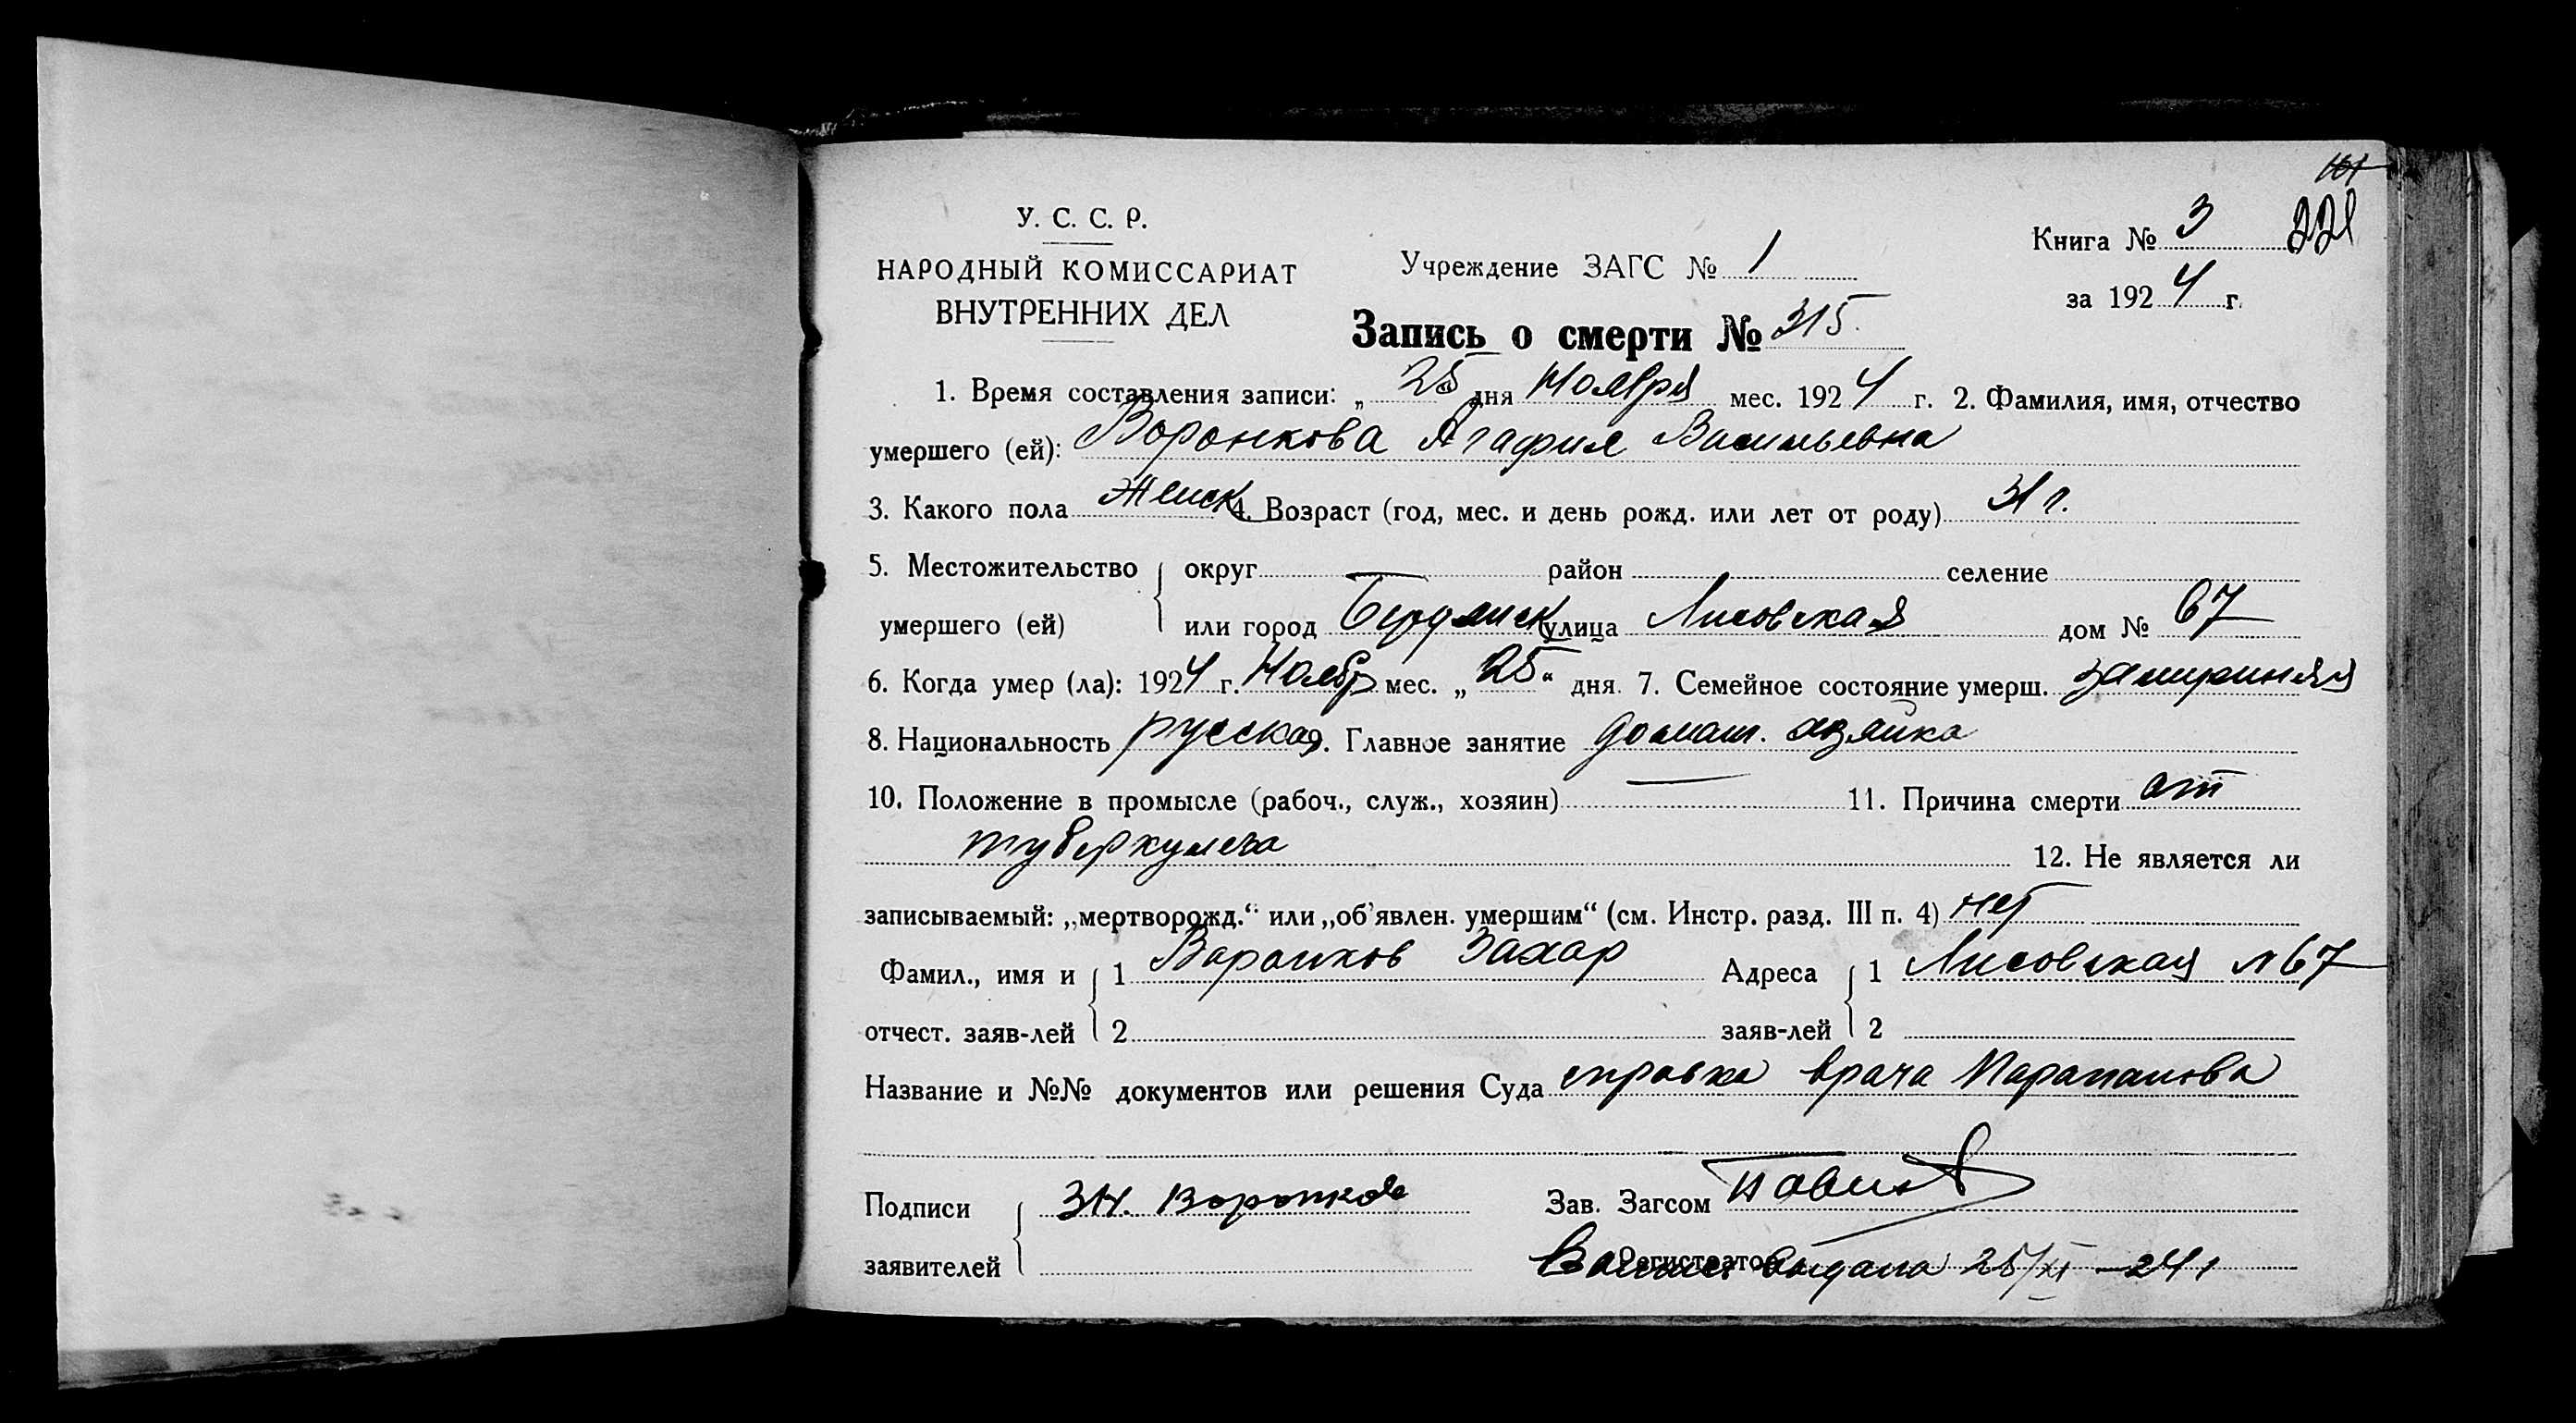 161
У. С. С. Р.
НАРОДНЫЙ КОМИССАРИАТ
ВНУТРЕННИХ ДЕЛ
Учреждение ЗАГС № 1
Книга № 3 221
за 1924 г.
Запись о смерти № 315.
1. Время составления записи: „ 25 дня Ноября мес. 1924 г. 2. Фамилия, имя, отчество
умершего (ей): Воронкова Агафия Васильевна
3. Какого пола Женск 4. Возраст (год, мес. и день рожд. или лет от роду) 31 г.
5. Местожительство округ район селение
умершего (ей) или город Бердянск улица Лисовская дом № 67
6. Когда умер (ла): 1924 г. Ноябр мес. „ 25 “ дня. 7. Семейное состояние умерш. замужняя
8. Национальность русская 9. Главное занятие домаш. хозяйка
10. Положение в промысле (рабоч., служ., хозяин) — 11. Причина смерти от
туберкулеза 12. Не является ли
записываемый: „мертворожд.“ или „об'явлен. умершим“ (см. Инстр. разд. III п. 4) нет
Фамил., имя и 1 Воронков Захар Адреса 1 Лисовская № 67
отчест. заяв-лей 2 заяв-лей 2
Название и №№ документов или решения Суда справка врача
Подписи З Н. Воронков Зав. Загсом
заявителей Регистратор выдана 25/XI - 24 г